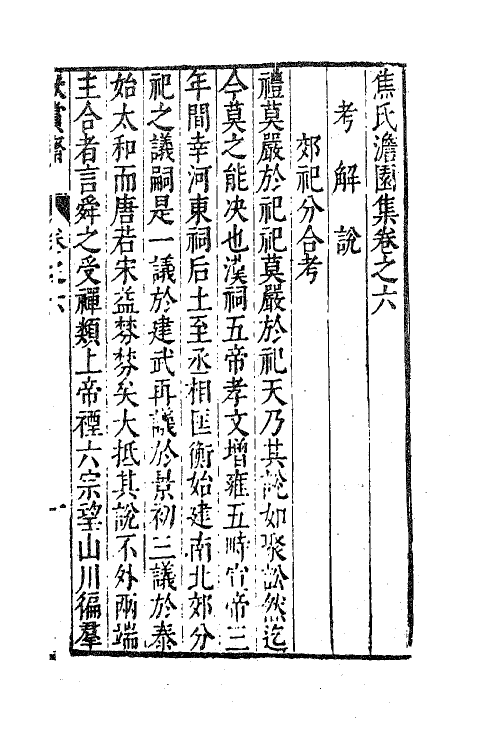 焦氏澹園集卷之六
考解說
郊祀分合考
禮莫嚴於祀祀莫嚴於祀天乃其說如聚訟然迄
今莫之能决也漢祠五帝孝文增雍五畤宣帝三
年間幸河東祠后土至丞相匡衡始建南北郊分
祀之議嗣是一議於建武再議於景初三議於泰
始太和而唐若宋益棼棼矣大抵其說不外兩端
主合者言舜之受禪類上帝禋六宗望山川徧羣
卷之六
一